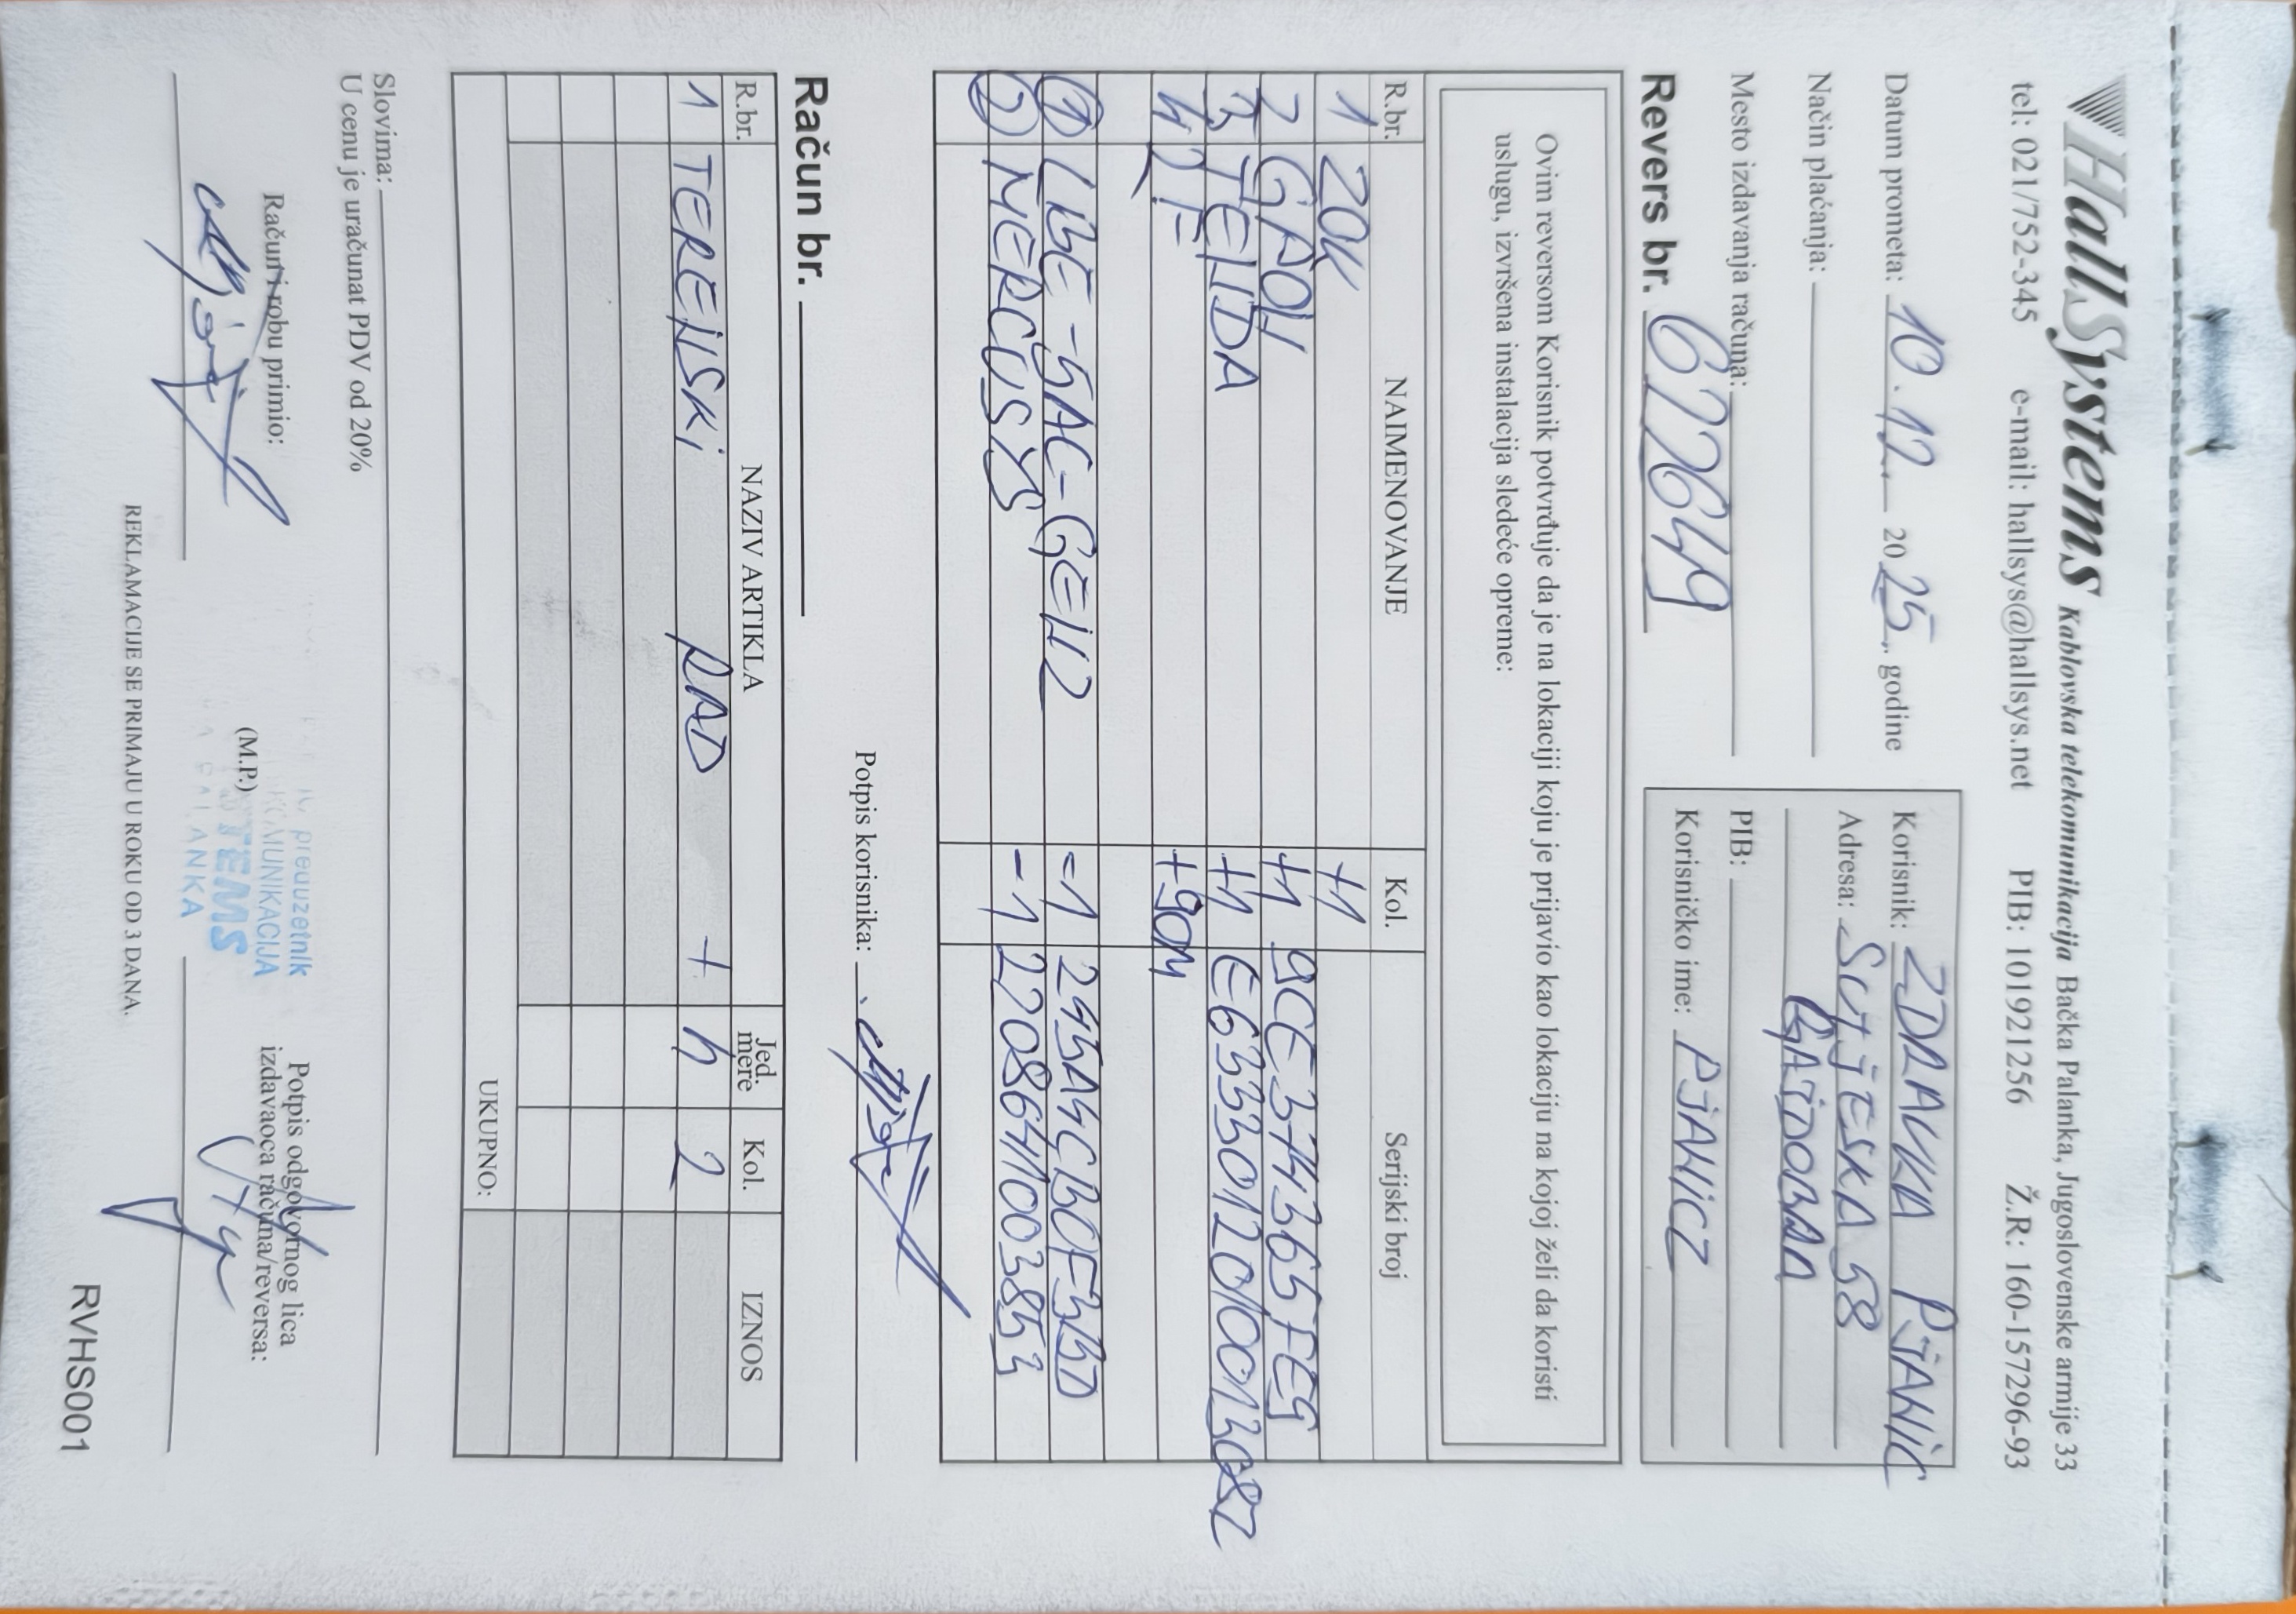 HallSystems Kablovska telekomunikacija Bačka Palanka, Jugoslovenske armije 33
tel: 021/752-345 e-mail: hallsys@hallsys.net PIB: 101921256 Ž.R: 160-157296-93
Datum prometa: 10.12. 2025. godine
Način plaćanja:
Mesto izdavanja računa:
Revers br. 672649
Korisnik: ZDRAVKA PJANIĆ
Adresa: SUTJESKA 58
GAJDOBRA
PIB:
Korisničko ime: PJANICZ
Ovim reversom Korisnik potvrđuje da je na lokaciji koju je prijavio kao lokaciju na kojoj želi da koristi
uslugu, izvršena instalacija sledeće opreme:
R.br. NAIMENOVANJE Kol. Serijski broj
1 ZOK +1
2 GPON +1
3 TENDA +1
4 +90m
1 LBE-5AC-GEN2 -1
2 MERCUSYS -1 2208641003853
Potpis korisnika:
Račun br.
R.br. NAZIV ARTIKLA Jed. mere Kol. IZNOS
1 TERENSKI RAD + h 2
UKUPNO:
Slovima:
U cenu je uračunat PDV od 20%
Račun i robu primio:
(M.P.)
preduzetnik
STEMS
Potpis odgovornog lica
izdavaoca računa/reversa:
REKLAMACIJE SE PRIMAJU U ROKU OD 3 DANA.
RVHS001